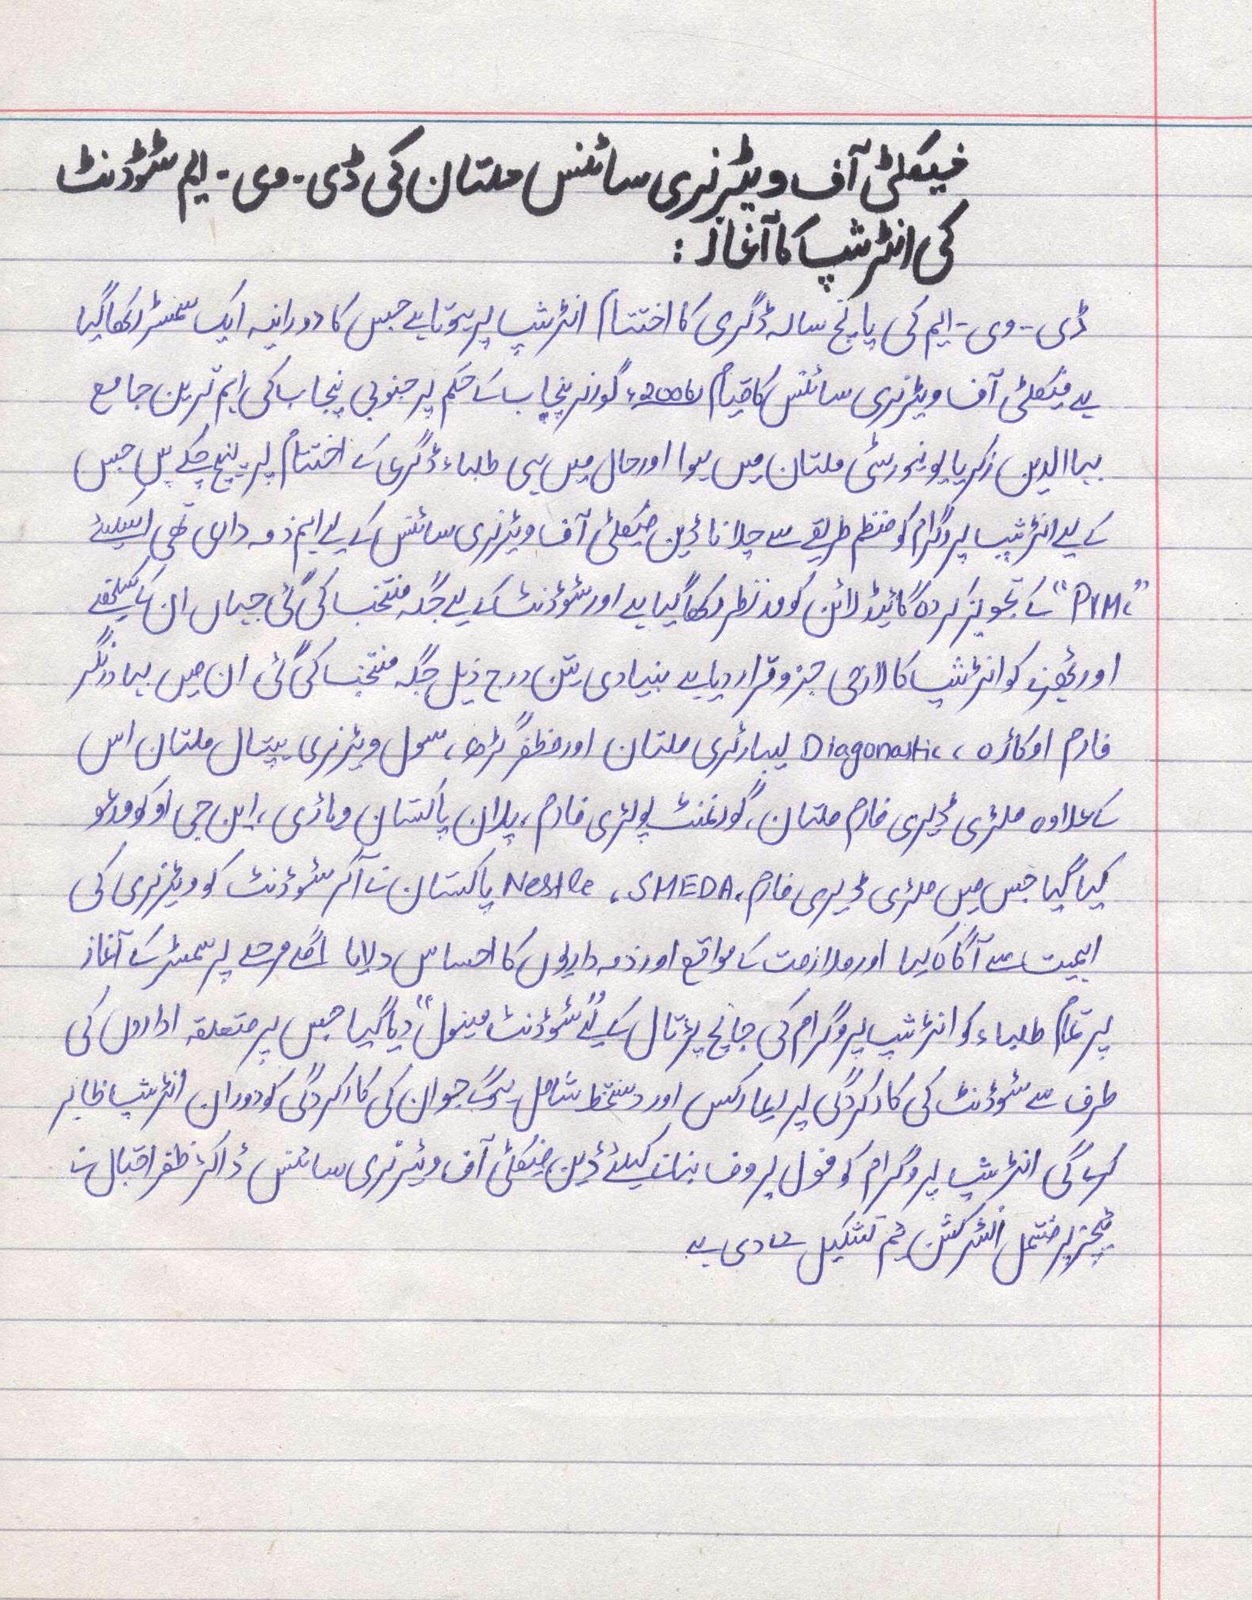 فیکلٹی آف ویٹرنری سائنس ملتان کی ڈی-وی-ایم سٹوڈنٹ
کی انٹرشپ کا آغاز :
ڈی-وی-ایم کی پانچ سالہ ڈگری کا اختتام انٹرشپ پر ہوتا ہے جس کا دورانیہ ایک سمسٹر رکھا گیا
ہے فیکلٹی آف ویٹرنری سائنس کا قیام 2006ء گورنر پنجاب کے حکم پر جنوبی پنجاب کی اہم ترین جامع
بہاالدین زکریا یونیورسٹی ملتان میں ہوا اور حال میں ہی طلباء ڈگری کے اختتام پر پہنچ چکے ہیں جس
کے لیے انٹرشپ پروگرام کو منظم طریقے سے چلانا ڈین فیکلٹی آف ویٹرنری سائنس کے لیے اہم ذمہ داری تھی اسکیلئے
"PVMC" کے تجویز کردہ گائیڈ لائن کو مدنظر رکھا گیا ہے اور سٹوڈنٹ کے لیے جگہ منتخب کی گئی جہاں ان کے سیکھنے
اور تجربہ کو انٹرشپ کا لازمی جزو قرار دیا ہے بنیادی تین درج ذیل جگہ منتخب کی گئی ان میں بہادرنگر
فارم اوکاڑہ ، Diagonastic لیبارٹری ملتان اور مظفر گڑھ ، سول ویٹرنری ہسپتال ملتان اس
کے علاوہ ملٹری ڈیری فارم ملتان ، گورنمنٹ پولٹری فارم ، پلان پاکستان وہاڑی ، این جی او کو مدعو
کیا گیا جس میں ملٹری ڈیری فارم ، SMEDA ، Nestle پاکستان نے آکر سٹوڈنٹ کو ویٹرنری کی
اہمیت سے آگاہ کیا اور ملازمت کے مواقع اور ذمہ داریوں کا احساس دلایا اگلے مرحلے پر سمسٹر کے آغاز
پر تمام طلباء کو انٹرشپ پروگرام کی جانچ پڑتال کے لیے "سٹوڈنٹ مینول" دیا گیا جس پر متعلقہ اداروں کی
طرف سے سٹوڈنٹ کی کارکردگی پر ریمارکس اور دستخط شامل ہونگے جو ان کی کارکردگی کو دوران انٹرشپ ظاہر
کرے گی انٹرشپ پروگرام کو فول پروف بنانے کیلئے ڈین فیکلٹی آف ویٹرنری سائنس ڈاکٹر ظفر اقبال نے
ٹیچرز پر مشتمل انسٹرکشن ٹیم تشکیل دے دی ہے